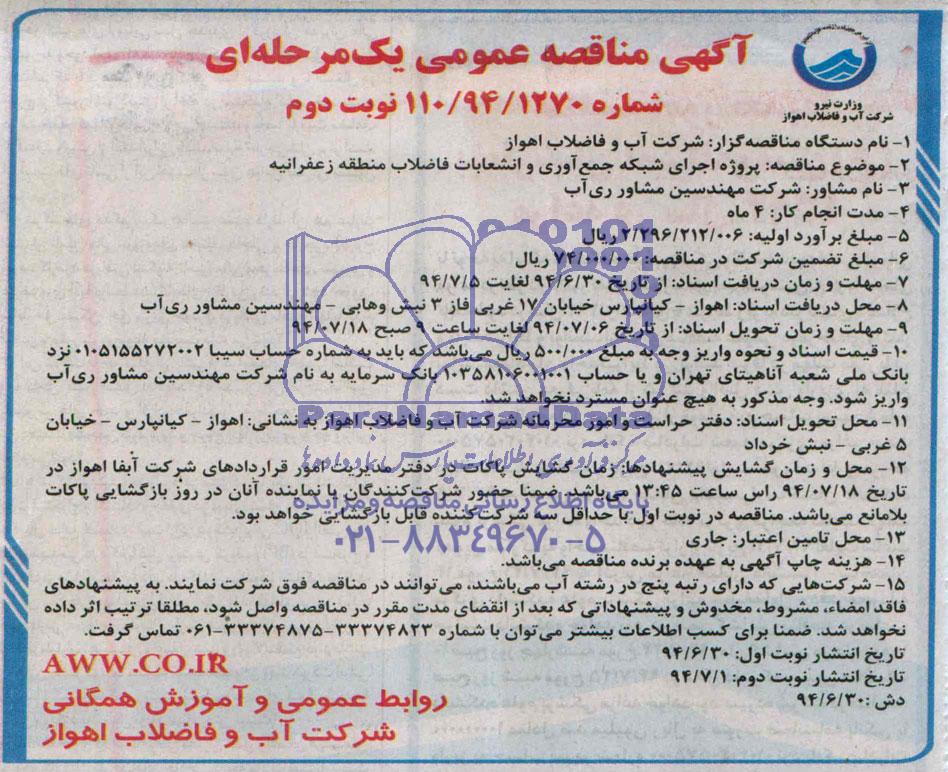 آگهی مناقصه عمومی یک‌مرحله‌ای
شماره ۱۱۰/۹۴/۱۲۷۰ نوبت دوم
وزارت نیرو
شرکت آب و فاضلاب اهواز
۱- نام دستگاه مناقصه‌گزار: شرکت آب و فاضلاب اهواز
۲- موضوع مناقصه: پروژه اجرای شبکه جمع‌آوری و انشعابات فاضلاب منطقه زعفرانیه
۳- نام مشاور: شرکت مهندسین مشاور ری‌آب
۴- مدت انجام کار: ۴ ماه
۵- مبلغ برآورد اولیه: ۲/۲۹۶/۲۱۲/۰۰۶ ریال
۶- مبلغ تضمین شرکت در مناقصه: ۷۴/۰۰۰/۰۰۰ ریال
۷- مهلت و زمان دریافت اسناد: از تاریخ ۹۴/۶/۳۰ لغایت ۹۴/۷/۵
۸- محل دریافت اسناد: اهواز - کیانپارس خیابان ۱۷ غربی فاز ۳ نبش وهابی - مهندسین مشاور ری‌آب
۹- مهلت و زمان تحویل اسناد: از تاریخ ۹۴/۰۷/۰۶ لغایت ساعت ۹ صبح ۹۴/۰۷/۱۸
۱۰- قیمت اسناد و نحوه واریز وجه به مبلغ ۵۰۰/۰۰۰ ریال می‌باشد که باید به شماره حساب سیبا ۰۱۰۵۱۵۵۲۷۲۰۰۲ نزد
بانک ملی شعبه آناهیتای تهران و یا حساب ۱۰۳۵۸۱۰۶۰۰۱۰۰۱ بانک سرمایه به نام شرکت مهندسین مشاور ری‌آب
واریز شود. وجه مذکور به هیچ عنوان مسترد نخواهد شد.
۱۱- محل تحویل اسناد: دفتر حراست و امور محرمانه شرکت آب و فاضلاب اهواز به نشانی: اهواز - کیانپارس - خیابان
۵ غربی - نبش خرداد
۱۲- محل و زمان گشایش پیشنهادها: زمان گشایش پاکات در دفتر مدیریت امور قراردادهای شرکت آبفا اهواز در
تاریخ ۹۴/۰۷/۱۸ راس ساعت ۱۳:۴۵ می‌باشد. ضمنا حضور شرکت‌کنندگان یا نماینده آنان در روز بازگشایی پاکات
بلامانع می‌باشد. مناقصه در نوبت اول با حداقل سه شرکت‌کننده قابل بازگشایی خواهد بود.
۱۳- محل تامین اعتبار: جاری
۱۴- هزینه چاپ آگهی به عهده برنده مناقصه می‌باشد.
۱۵- شرکت‌هایی که دارای رتبه پنج در رشته آب می‌باشند، می‌توانند در مناقصه فوق شرکت نمایند. به پیشنهادهای
فاقد امضاء، مشروط، مخدوش و پیشنهاداتی که بعد از انقضای مدت مقرر در مناقصه واصل شود، مطلقا ترتیب اثر داده
نخواهد شد. ضمنا برای کسب اطلاعات بیشتر می‌توان با شماره ۳۳۳۷۴۸۲۳-۳۳۳۷۴۸۷۵-۰۶۱ تماس گرفت.
تاریخ انتشار نوبت اول: ۹۴/۶/۳۰
تاریخ انتشار نوبت دوم: ۹۴/۷/۱
دش: ۹۴/۶/۳۰
AWW.CO.IR
روابط عمومی و آموزش همگانی
شرکت آب و فاضلاب اهواز
ParsNamadData
پایگاه اطلاع رسانی مناقصه و مزایده
۰۲۱-۸۸۳۴۹۶۷۰-۵